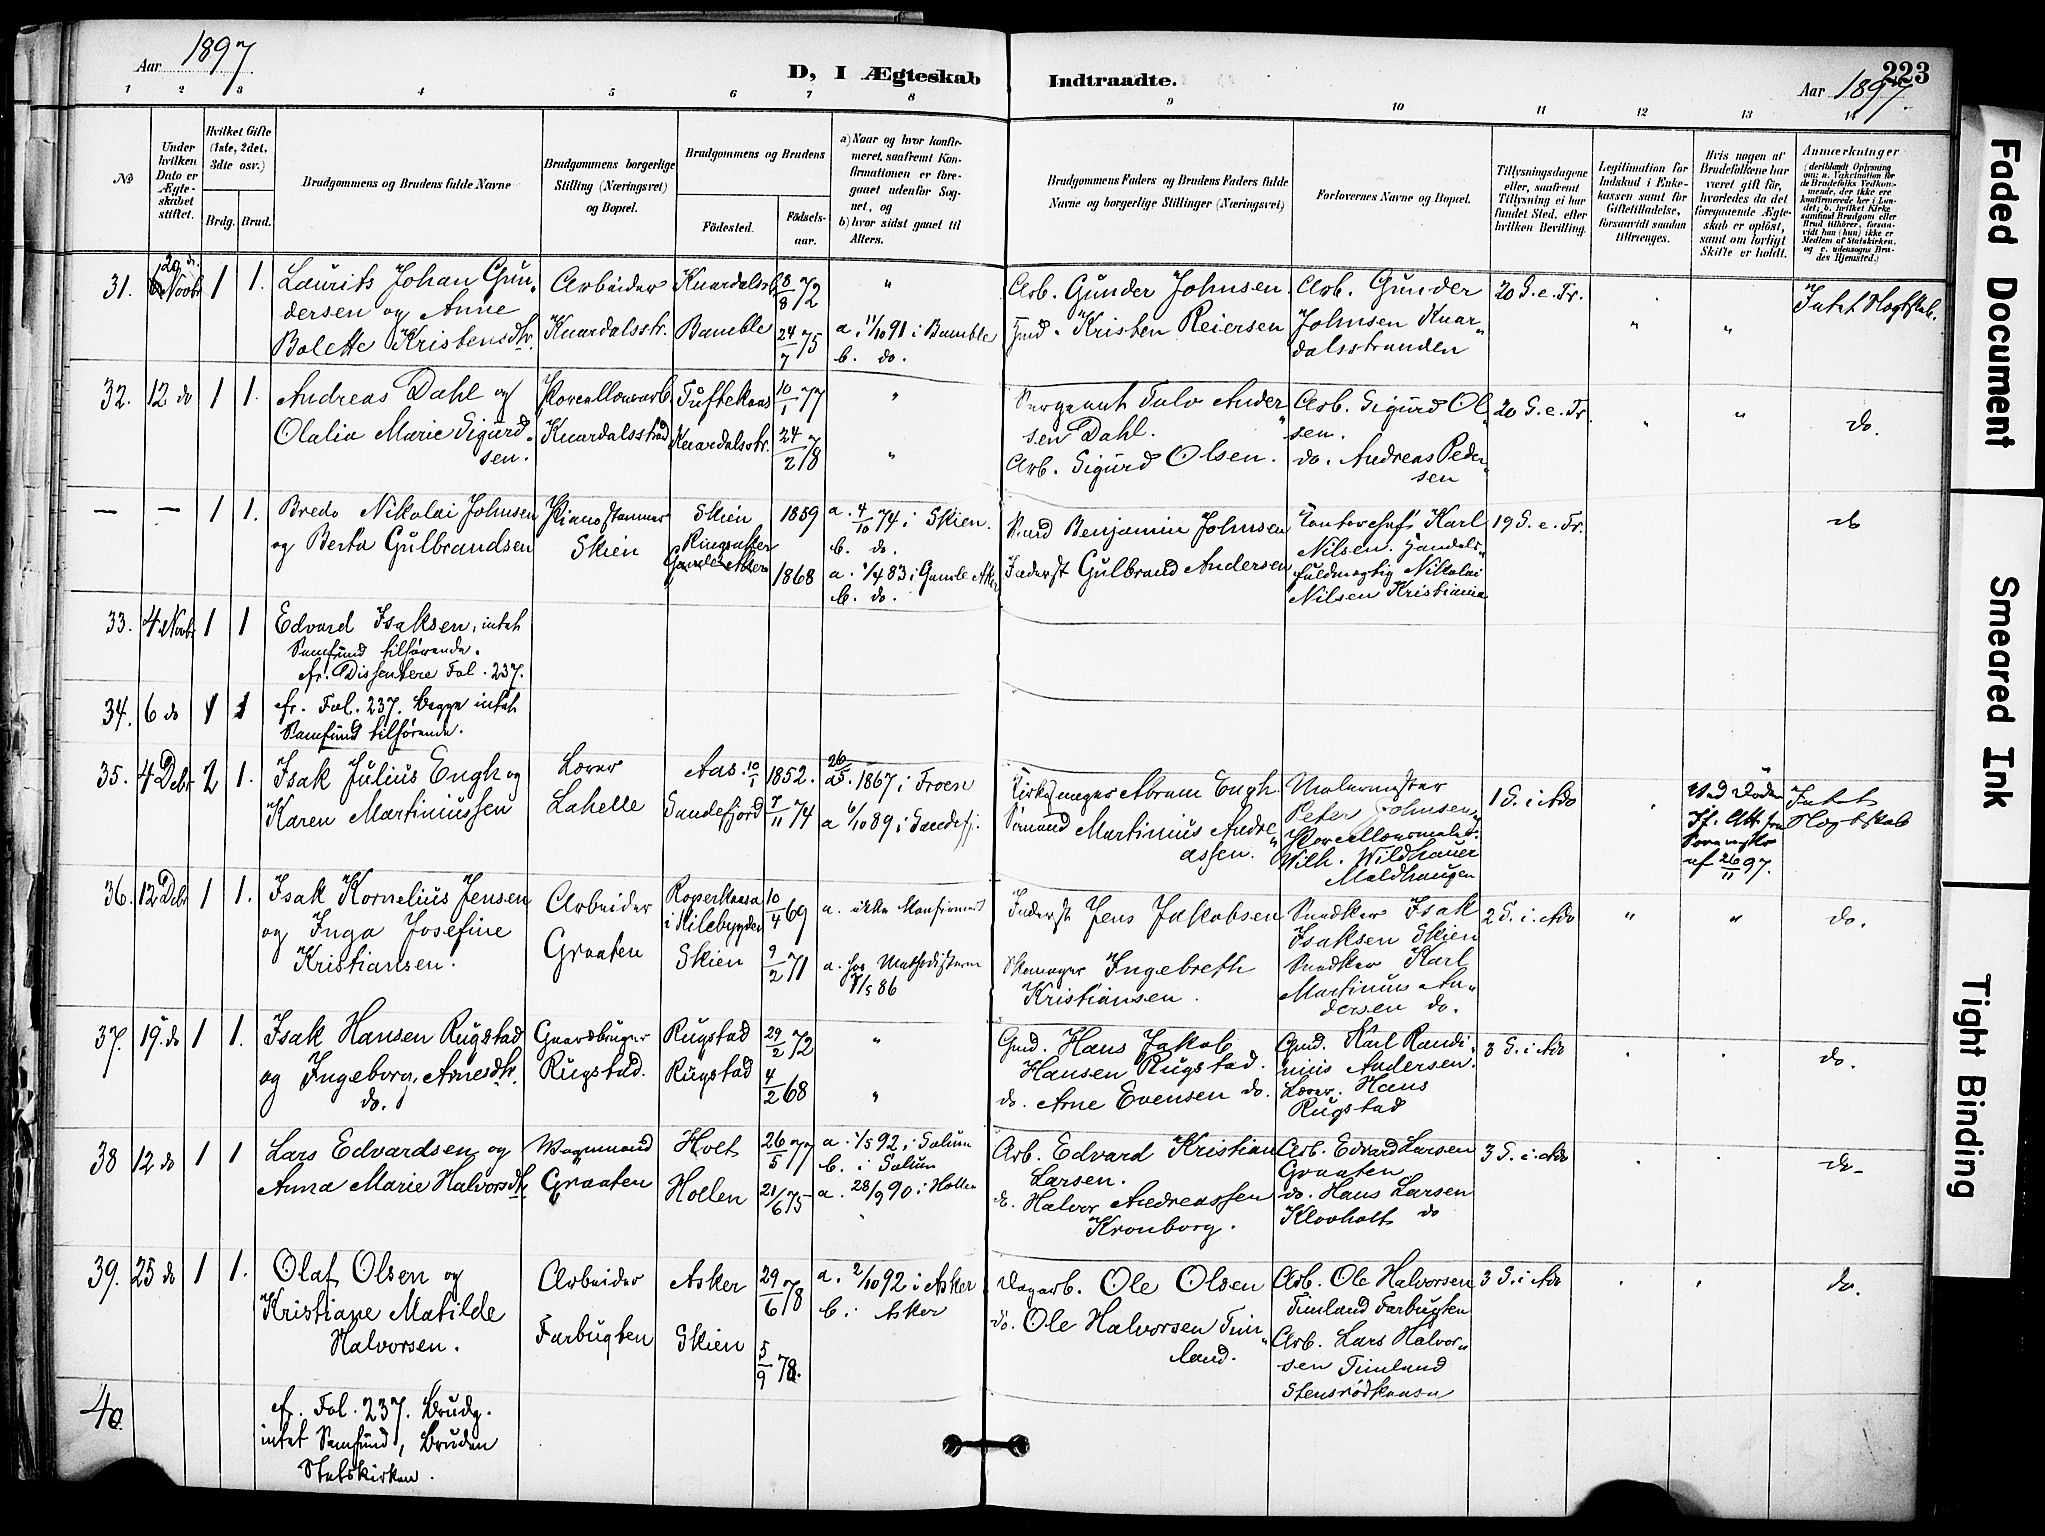 Aar 1897
D, I Ægteskab Indtraadte.
223
Aar 1897
1 2 3 4 5 6 7 8 9 10 11 12 13 14
No
Under hvilken Dato er Ægteskabet stiftet.
Hvilket Gifte (1ste, 2det, 3die osv.)
Brdg. Brud.
Brudgommens og Brudens fulde Navne
Brudgommens borgerlige Stilling (Næringsvei) og Bopæl.
Brudgommens og Brudens
Födested.
Födsels-aar.
a) Naar og hvor konfirmeret, saafremt Konfirmationen er foregaaet udenfor Sognet, og
b) hvor sidst gaaet til Alters.
Brudgommens Faders og Brudens Faders fulde Navne og borgerlige Stillinger (Næringsvei)
Forlovernes Navne og Bopæl.
Tillysningsdagene eller, saafremt Tillysning ei har fundet Sted, efter hvilken Bevilling.
Legitimation for Indskud i Enkekassen samt for Giftetilladelse, forsaavidt saadan tiltrænges.
Hvis nogen af Brudefolkene har været gift för, hvorledes da det foregaaende Ægteskab er oplöst, samt om lovligt Skifte er holdt.
Anmærkninger
31. Novbr 1 1. Laurits Johan Gundersen og Anne Bolette Kristensdtr.
Arbeider Knardalsstr.
Knardalsstr 3/8 72
Bamble 24/7 75
a. 11/10 91 i Bamble
b. do.
Arb. Gunder Johnsen
Gmd. Kristen Reiersen
Arb. Gunder Johnsen Knardalsstranden
20 S. e. Tr.
Intet Slegtskab.
32. 12 do 1 1. Andreas Dahl og Olalia Marie Sigurdsen.
Porcellænsarb Knardalsstrd
Tuftekaas 10/1 77
Knardalsstr. 24/2 78
Sergeant Talv Andersen Dahl.
Arb. Sigurd Olsen.
Arb. Sigurd Olsen.
do. Andreas Pedersen
20 S. e. Tr.
do.
— — 1 1. Bredo Nikolai Johnsen og Berta Gulbrandsen
Pianostemmer Skien
Skien 1859
Ringsaker Gamle Aker 1868
a. 4/10 74 i Skien.
b. do.
a. 1/4 83 i Gamle Aker
b. do.
Benjamin Johnsen
Inderst Gulbrand Andersen
Kontorchef Karl Nilsen. Handelsfuldmægtig Nikolai Nilsen Kristiania
19 S. e. Tr.
do
33. 4 Novbr 1 1 Edvard Isaksen, intet Samfund tilhørende.
cfr. Dissentere Fol. 237.
34. 6 do 1 1 cfr. Fol. 237. Begge intet Samfund tilhørende.
35. 4 Debr 2 1. Isak Julius Engh og Karen Martiniussen
Lærer Lahelle
Aas. 10/1 1852.
Sandefjord 7/11 74
26/5. 1867 i Froen
a 6/10 89 i Sandefj.
Kirkesanger Abram Engh.
Sømand Martinius Andreassen.
Malermester Peter Johnsen,
Porcellænsmaler Wilh. Wildhauer Moldhaugen
1 S. i Adv
Ved Døden
af 26/11 97.
Intet Slegtskab
36. 12 Debr 1 1. Isak Kornelius Jensen og Inga Josefine Kristiansen.
Arbeider Graaten
Roperkaasa i Kilebygden 10/4 69
Skien 9/2 71
a. ikke konfirmeret
a. hos Methodisterne 1/5 86
Inderst Jens Jakobsen
Skomager Ingebreth Kristiansen.
Snedker Isak Isaksen Skien
Snedker Karl Martinius Andersen do.
2 S. i Adv
do.
37. 19. do 1 1. Isak Hansen Rugstad og Ingeborg Arnesdtr. do.
Gaardbruger Rugstad.
Rugstad 29/2 72
Rugstad 4/2 68
Gmd. Hans Jakob Hansen Rugstad.
do. Arne Evensen do.
Gmd. Karl Randinius Andersen.
Lærer. Hans Rugstad
3 S. i Adv
do.
38 12 do 1 1 Lars Edvardsen og Anna Marie Halvorsdtr
Vognmand Graaten
Holt 26/5 77
Hollen 21/6 75
a. 1/5 92 i Solum
b. i Solum
a. 28/9 90 i Hollen
Arb. Edvard Kristian Larsen.
do. Halvor Andreassen Kronborg.
Arb. Edvard Larsen Graaten
do. Hans Larsen Klovholt do
3 S. i Adv
do
39. 25 do 1 1. Olaf Olsen og Kristiane Matilde Halvorsen.
Arbeider Farbugten
Asker 29/6 78
Skien 5/9 78.
a. 2/10 92 i Asker
b. i Asker
Dagarb. Ole Olsen
do. Ole Halvorsen Timland.
Arb. Ole Halvorsen Timland Farbugten
Arb. Lars Halvorsen Timland Stensrödkaasa
3 S. i Adv
do.
40. cfr. Fol. 237. Brudg. intet Samfund, Bruden Statskirken.
Faded Document
Smeared Ink
Tight Binding